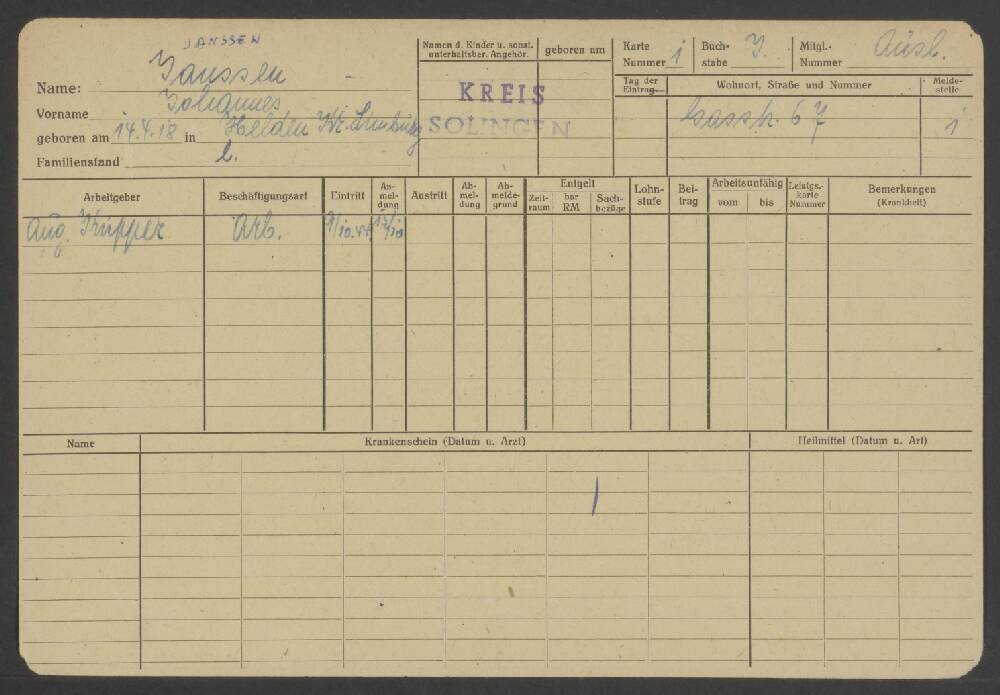 JANSSEN
Name: Janssen
Vorname Johannes
geboren am 14.4.18 in Helden Kr. Limburg
Familienstand l.
Namen d. Kinder u. sonst. unterhaltsber. Angehör.
geboren am
KREIS
SOLINGEN
Karte Nummer 1
Buchstabe J.
Mitgl.-Nummer Ausl.
Tag der Eintrag.
Wohnort, Straße und Nummer
Meldestelle
Gasstr. 67
1
Arbeitgeber
Beschäftigungsart
Eintritt
Anmeldung
Austritt
Abmeldung
Abmeldegrund
Entgelt
Zeitraum
bar RM
Sachbezüge
Lohnstufe
Beitrag
Arbeitsunfähig
vom
bis
Leistgs.-karte Nummer
Bemerkungen (Krankheit)
Aug. Küpper Arb. 9/10.44 13/10
Name
Krankenschein (Datum u. Arzt)
Heilmittel (Datum u. Art)